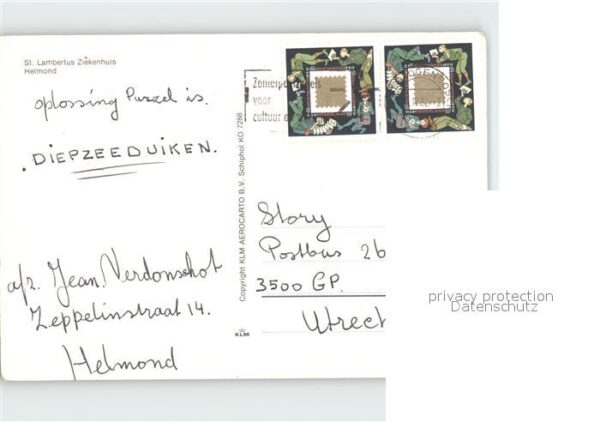 St. Lambertus Ziekenhuis
Helmond
oplossing Puzzel is.
DIEPZEEDUIKEN.
a/z. Jean Verdonschot
Zeppelinstraat 14.
Helmond
Copyright KLM AEROCARTO B.V. Schiphol KO 7268
KLM
voor
cultuur e
Story
Postbus 26
3500 GP.
Utrec
privacy protection
Datenschutz